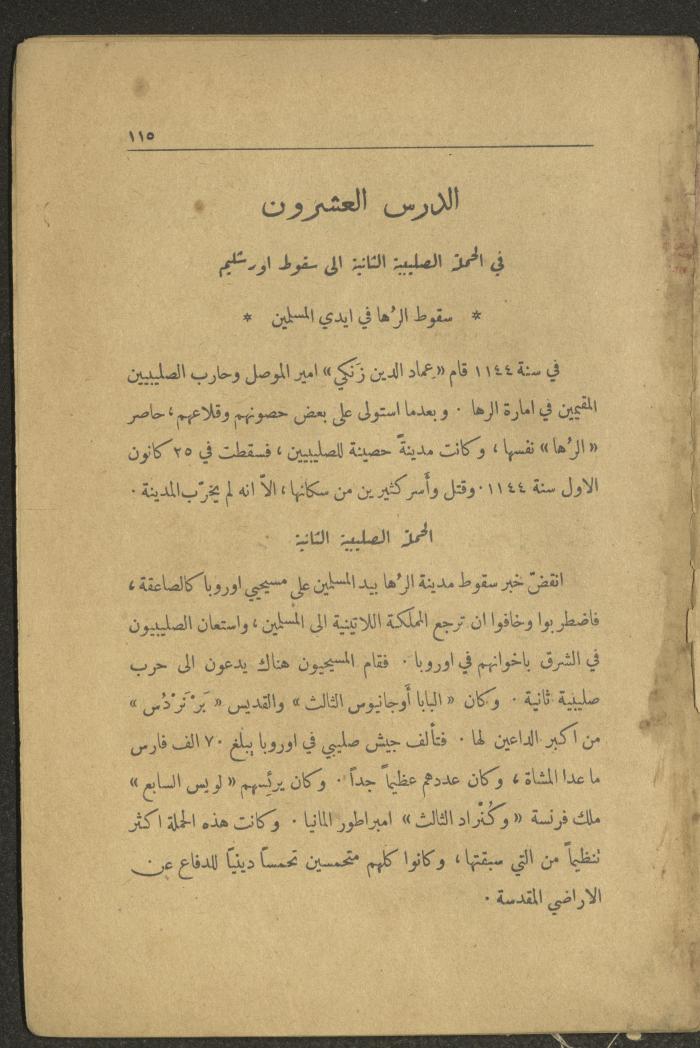 ١١٥
الدرس العشرون
في الحملة الصليبية الثانية الى سقوط اورشليم
* سقوط الرُها في ايدي المسلمين *
في سنة ١١٤٤ قام «عماد الدين زَنكي» امير الموصل وحارب الصليبيين
المقيمين في امارة الرها . وبعدما استولى على بعض حصونهم وقلاعهم، حاصر
«الرُها» نفسها، وكانت مدينةً حصينة للصليبيين، فسقطت في ٢٥ كانون
الاول سنة ١١٤٤. وقتل وأَسر كثيرين من سكانها، الاّ انه لم يخرّب المدينة .
الحملة الصليبية الثانية
انقضّ خبر سقوط مدينة الرُها بيد المسلمين على مسيحيي اوروبا كالصاعقة،
فاضطربوا وخافوا ان ترجع المملكة اللاتينية الى المسلمين، واستعان الصليبيون
في الشرق باخوانهم في اوروبا . فقام المسيحيون هناك يدعون الى حرب
صليبية ثانية . وكان «البابا أَوجانيوس الثالث» والقديس «بَرْنَرْدُس»
من اكبر الداعين لها . فتألف جيش صليبي في اوروبا يبلغ ٧٠ الف فارس
ما عدا المشاة، وكان عددهم عظيماً جداً . وكان يرئِسهم «لويس السابع»
ملك فرنسة «وكُنْراد الثالث» امبراطور المانيا . وكانت هذه الحملة اكثر
تنظيماً من التي سبقتها، وكانوا كلهم متحمسين تحمساً دينياً للدفاع عن
الاراضي المقدسة .